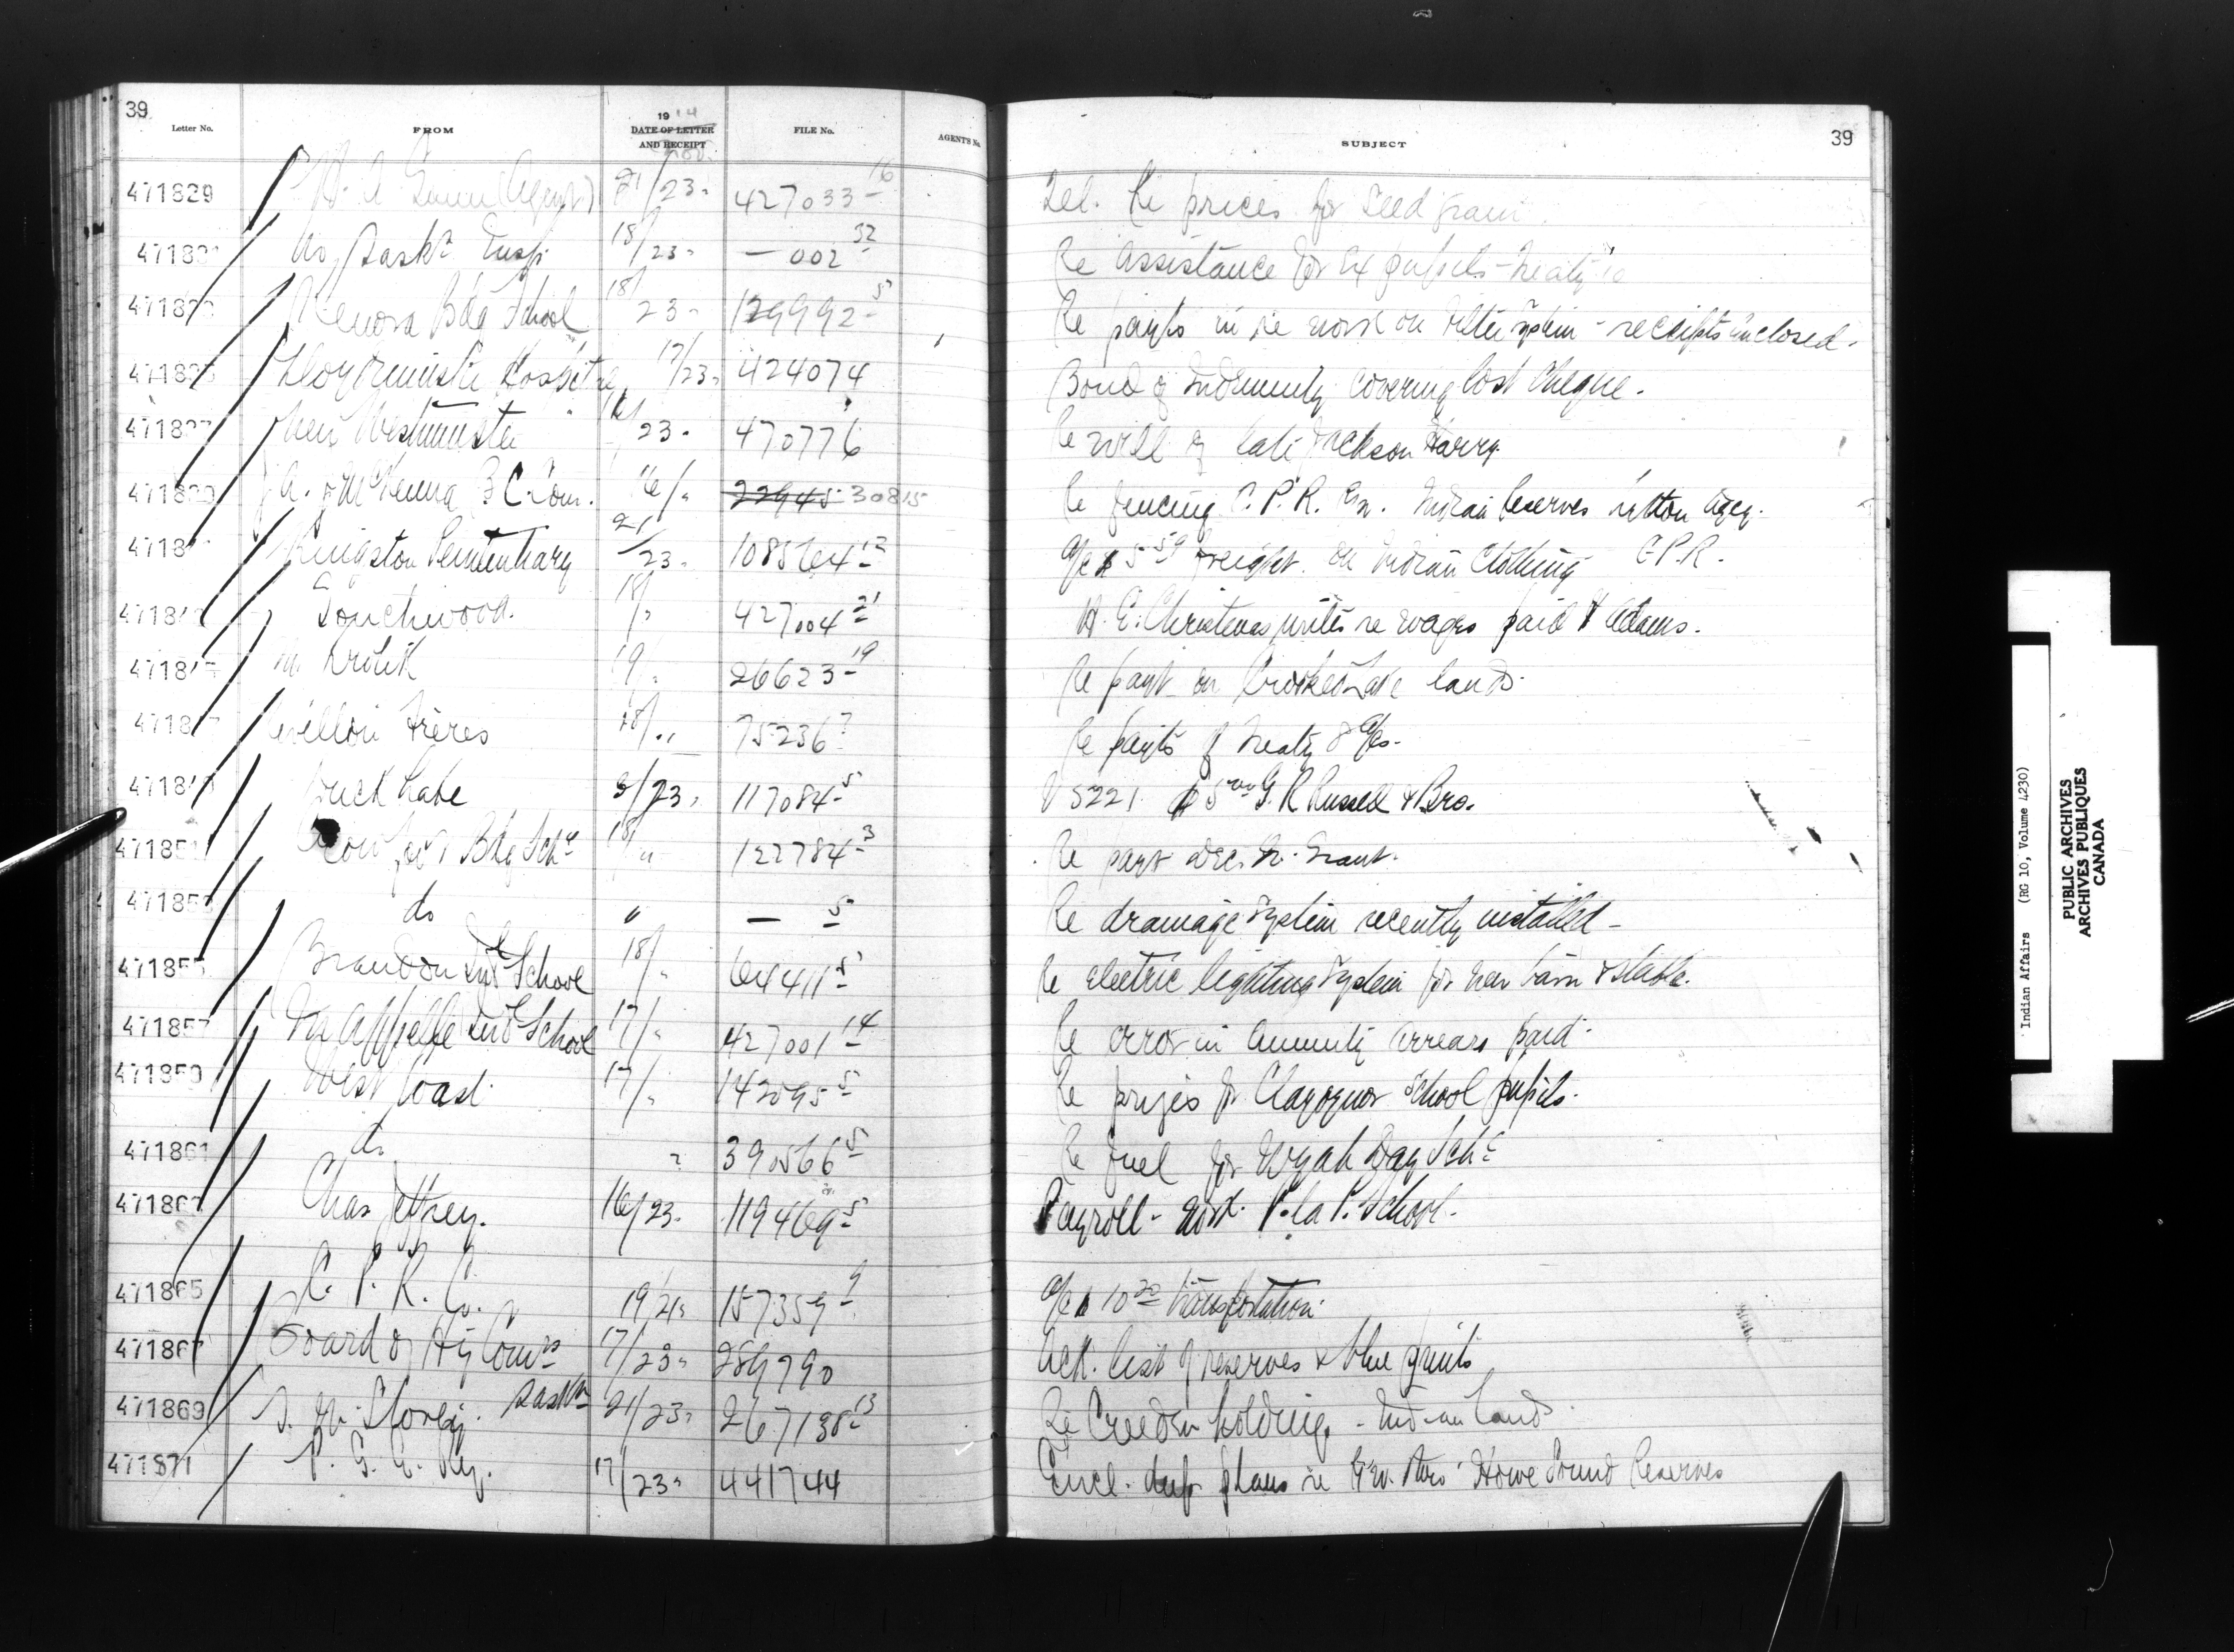 39
Letter No. FROM 1914 DATE OF LETTER AND RECEIPT FILE No. AGENT'S No. SUBJECT 39
Nov.
471829 W. A. (Agent) 21/23 " 427033-16 Tel. Re prices for Seed grain
No. Sask. Insp. 18/23 " — 002 32 Re assistance for ex pupils - Treaty
Kenora Bdg School 18/23 " 129992-5 Re payts in re work on filter system - receipts inclosed.
Lloydminster Hospital 17/23 " 424074 Bond of Indemnity covering lost cheque.
New Westminster 16/23 " 470776 Re will of late Jackson Harry.
J. A. J. McKenna B. C. Com. 16/ " 22945 30815 Re fencing C. P. R. Indian Reserves Agcy.
Kingston Penitentiary 21/23 " 108564-12 a/c $5 59 freight on Indian Clothing C.P.R.
Touchwood. 18/ " 427004 21 H. E. Christmas writes re wages paid Adams.
19 " 26623-19 Re payt on Crooked Lake lands.
Revillon Frères 18/ " 75236 7 Re payts of Treaty 8 a/cs.
Duck Lake 3/23 " 117084-5 V 5221 $5 00 G. R Russell & Bro.
Cowessess Bdg Schl 18/ " 122784-3 Re payt Dec. Qr. Grant.
do " — 5 Re drainage system recently installed -
471855 Brandon Indl School 18/ " 64411-5 Re electric lighting system for new barn & stable.
471857 Qu'Appelle Indl School 17/ " 427001 14 Re error in annuity arrears paid.
471859 West Coast 17/ " 142095 5 Re prizes for Clayoquot School pupils.
471861 do " 390566 5 Re fuel for Wyah Day Schl
Chas Jeffrey. 16/23 " 119469-5 Payroll - work P. la P. School.
471865 C. P. R. Co. 19/21 " 157359 9 a/c $10 20 transportation.
471867 Board of Hy Comrs Saskn 17/23 " 289790 Ack. list of reserves & blue prints
471869 21/23 " 267138-13 Re holding - Indian lands
471871 P. G. E. Ry. 17/23 " 441744 Encl. dup. plans re Howe Sound Reserves
Indian Affairs (RG 10, Volume 4230)
PUBLIC ARCHIVES
ARCHIVES PUBLIQUES
CANADA